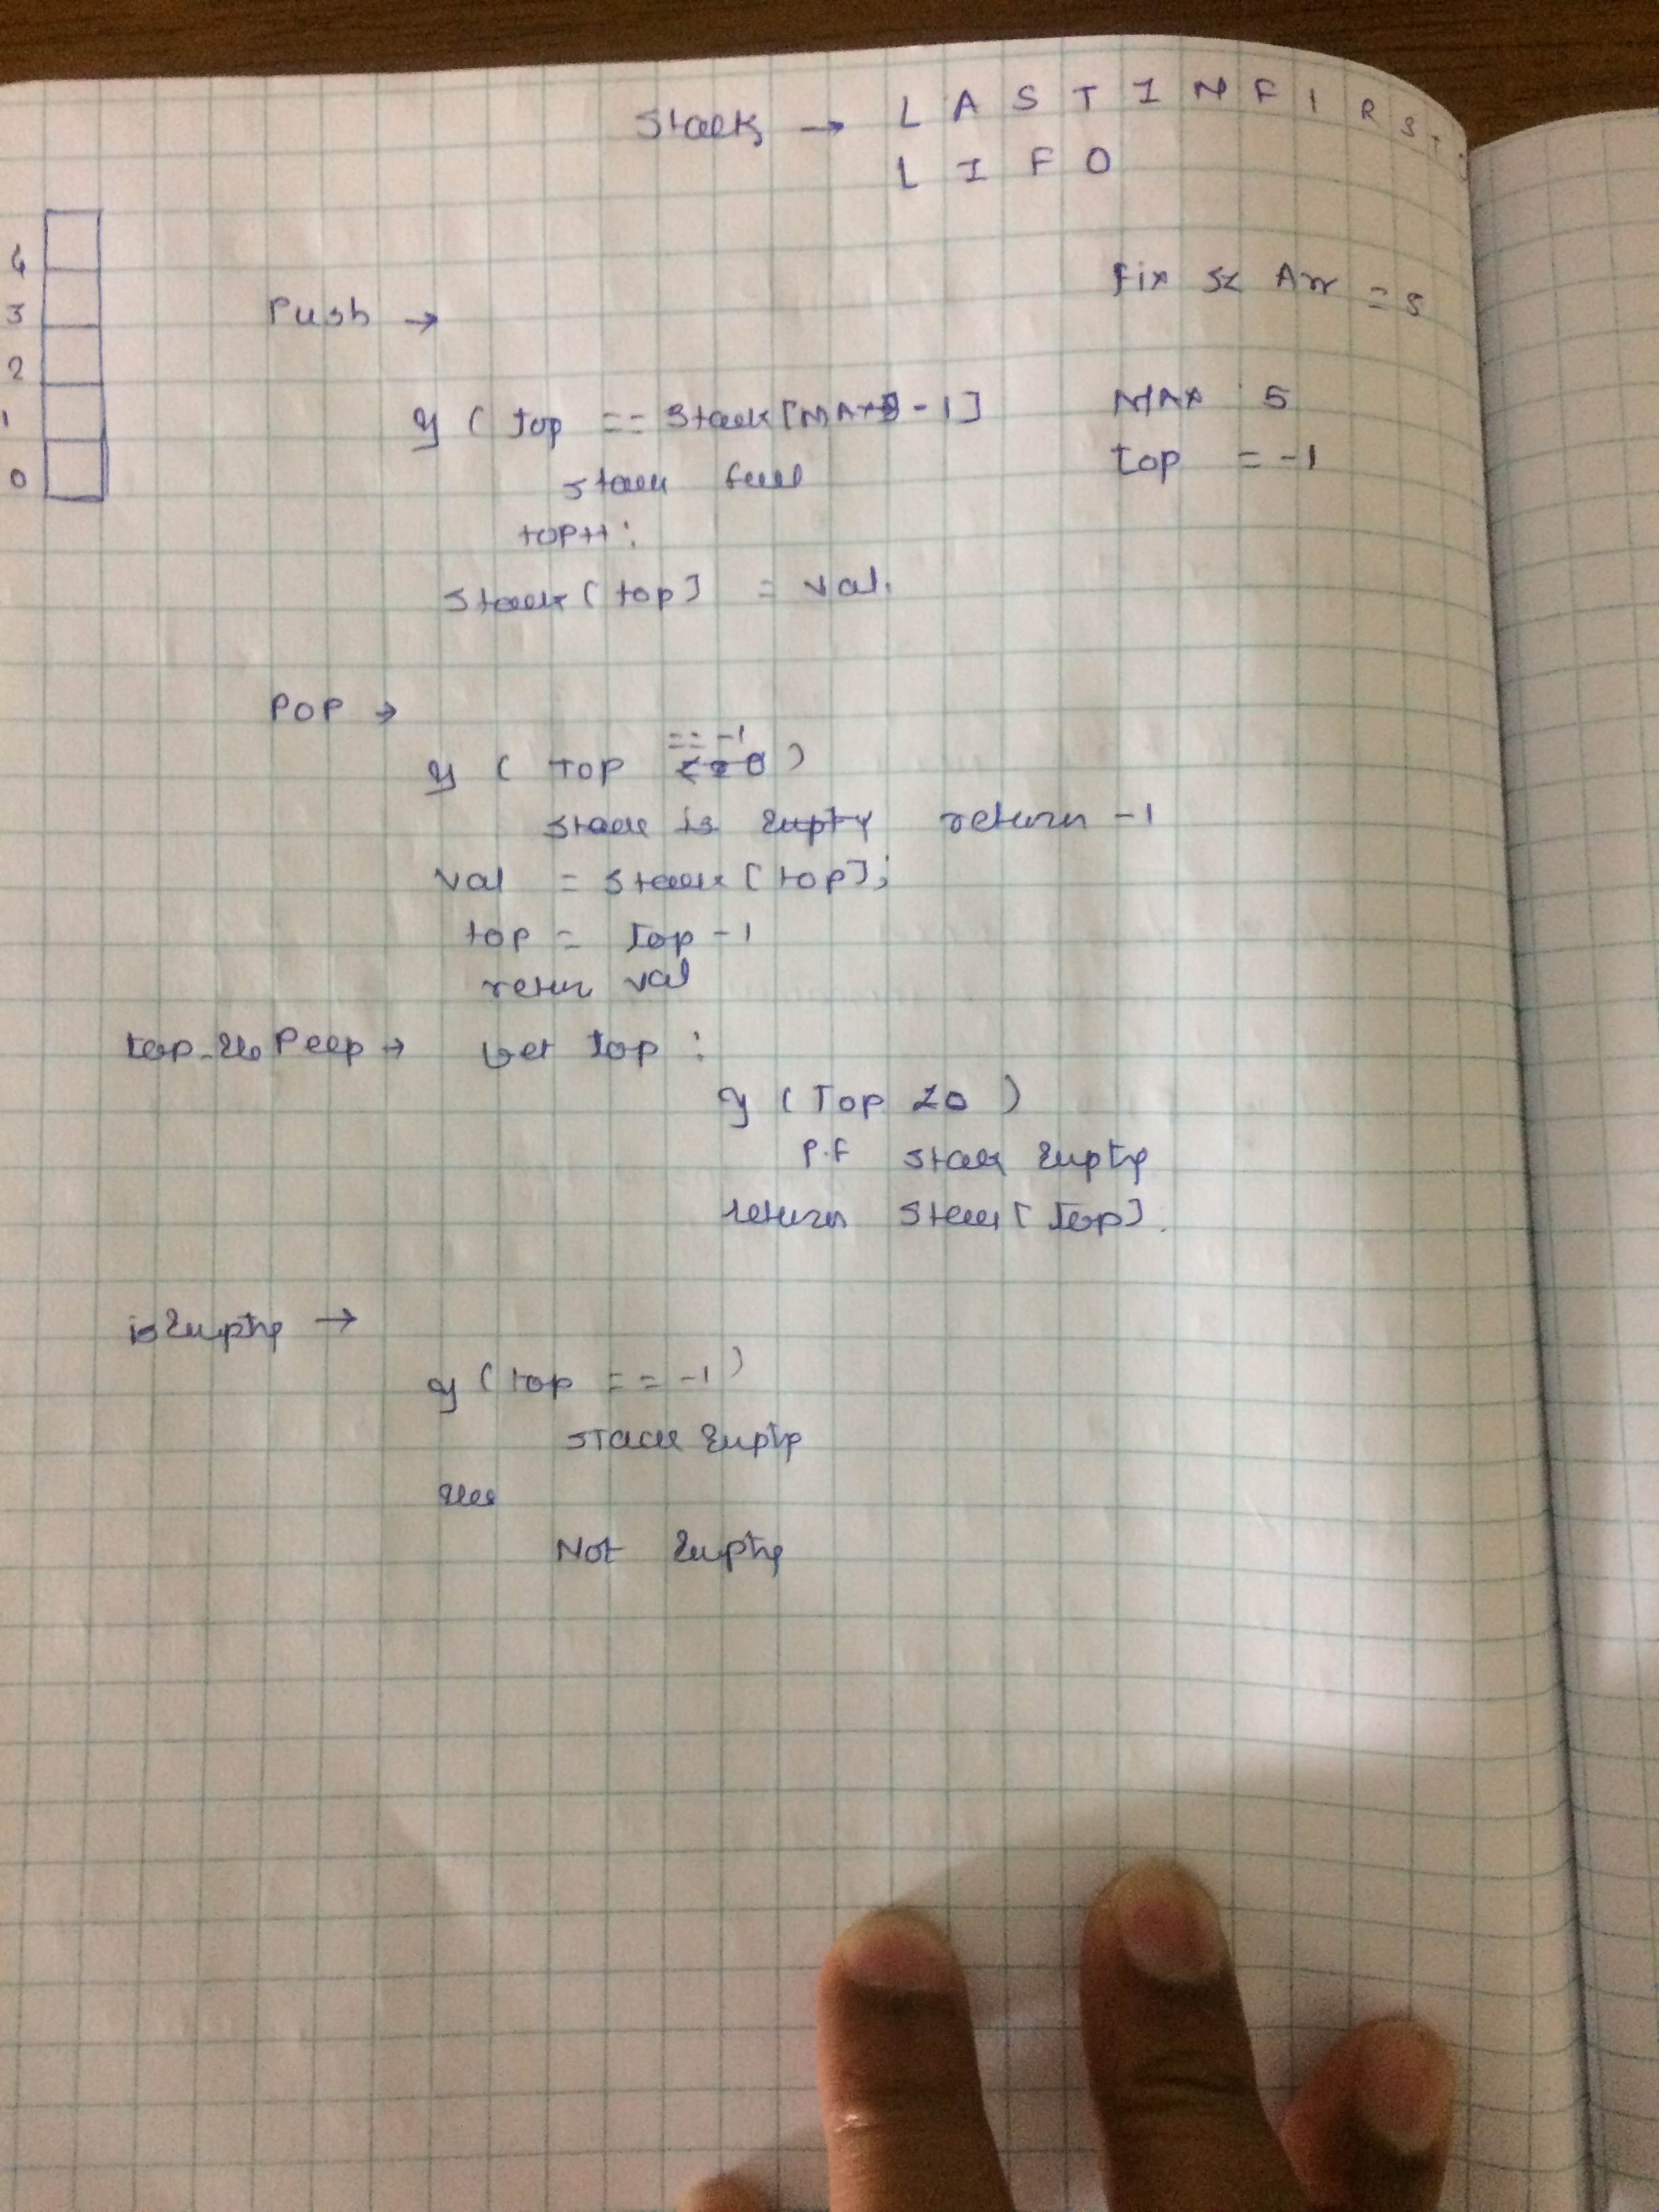 Stack → LAST IN FIRST
LIFO
4
3
2
1
0
Fix sz Arr = 5
Push →
MAX 5
if ( top == Stack [MAX - 1]
top = -1
stack full
top++;
stack [top] = val.
POP →
== -1
if ( TOP )
stack is Empty return -1
val = stack [top];
top = top - 1
return val
Peep → Get top :
if (Top <0 )
P.f stack Empty
return stack [top].
isEmpty →
if (top == -1)
stack Empty
else
Not Empty